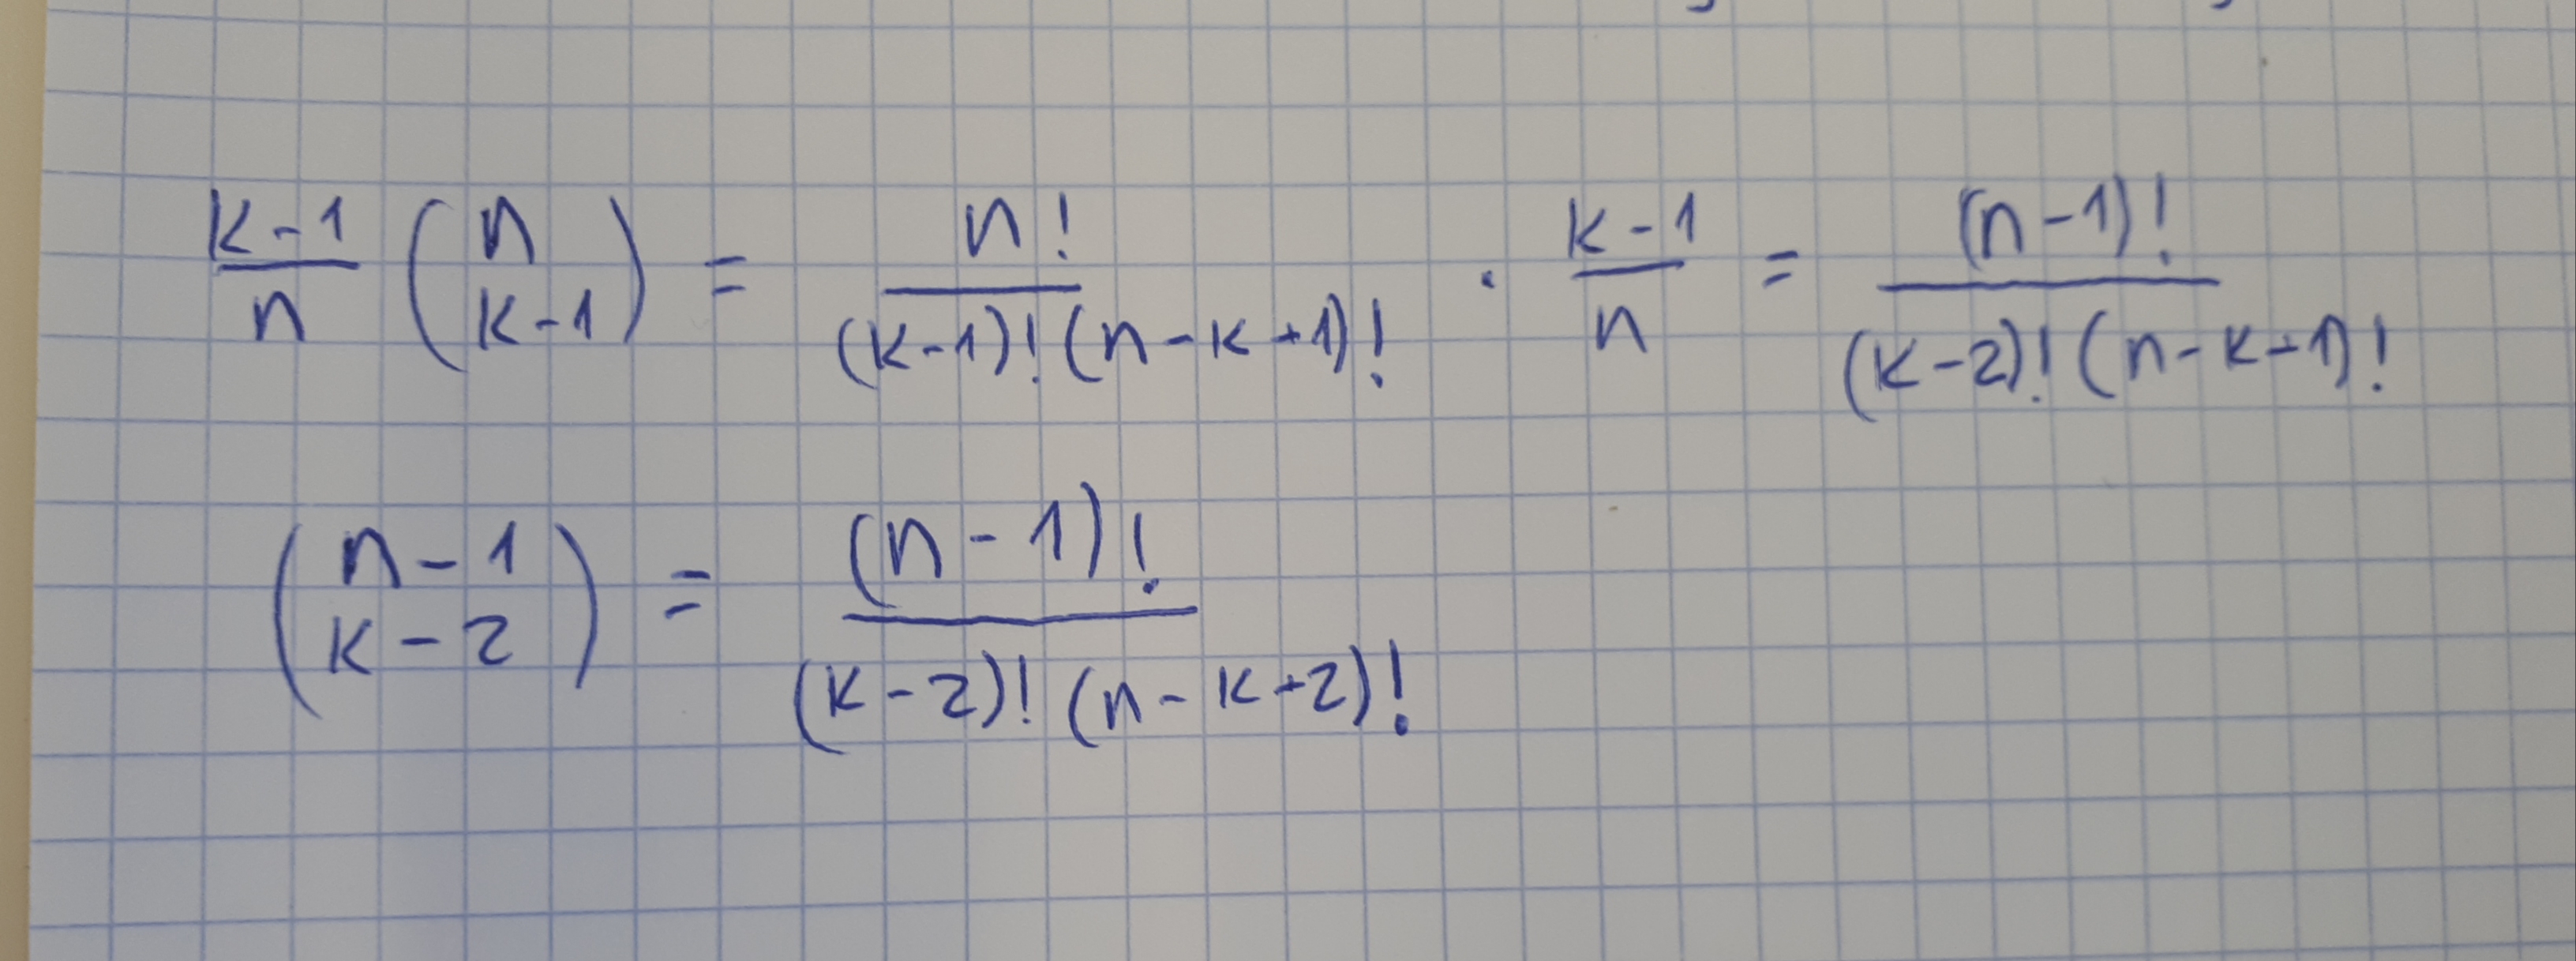 \frac{k-1}{n} \binom{n}{k-1} = \frac{n!}{(k-1)!(n-k+1)!} \cdot \frac{k-1}{n} = \frac{(n-1)!}{(k-2)!(n-k+1)!}
\binom{n-1}{k-2} = \frac{(n-1)!}{(k-2)!(n-k+2)!}